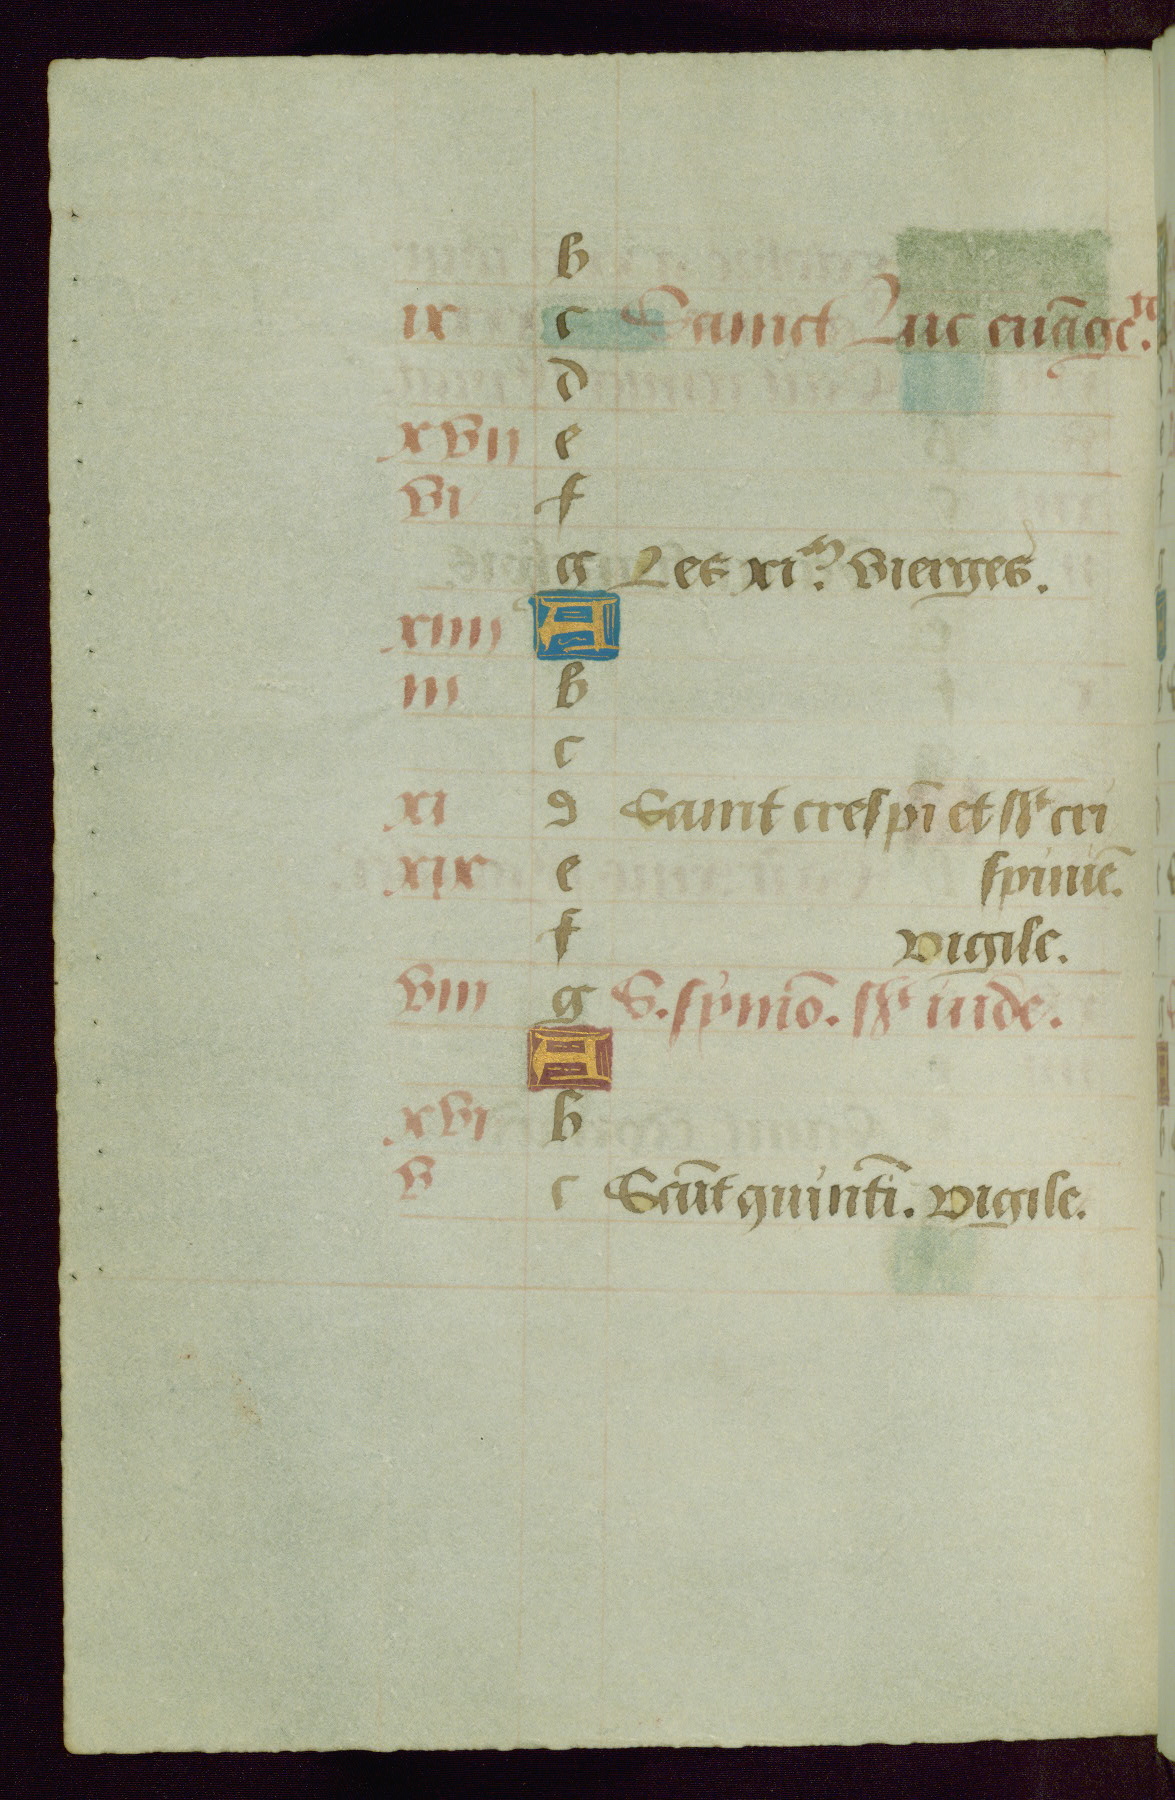 b
ix c Sainct Luc euãgeᵗᵉ.
d
xvii e
vi f
g Les xiᵐ. vierges.
xiiii A
iii b
c
xi d Saint crespĩ et sᵗ cri
xix e spiniẽ.
f vigile.
viii g S. symõ. sᵗ iude.
A
xvi b
v c Scãt quintĩ. vigile.